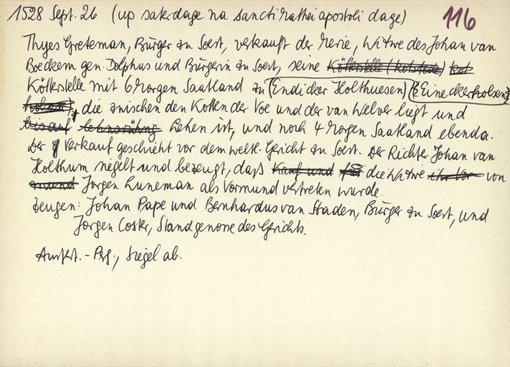 1528 Sept. 26 (up saterdage na sancti Mathei apostoli dage) 116
Thyes Greteman, Bürger zu Soest, verkauft der Merie, Witwe des Johan van
Boedeem gen. Dolphus und Bürgerin zu Soest, seine Kötterstelle (Kotstede)
Kötterstelle mit 6 Morgen Saatland zu (Endicker Holthuesen)
, die zwischen den Kotten der Voe und der van Welver liegt und
Lehen ist, und noch 4 Morgen Saatland ebenda.
Der Verkauf geschieht vor dem weltl. Gericht zu Soest. Der Richter Johan van
Holthum siegelt und bezeugt, daß Kauf und für die Witwe von
Jorgen Luneman als Vormund vertreten wurde.
Zeugen: Johan Pape und Bernhardus van Staden, Bürger zu Soest, und
Jorgen Coster, Standgenosse des Gerichts.
Ausfert. - Prg., Siegel ab.